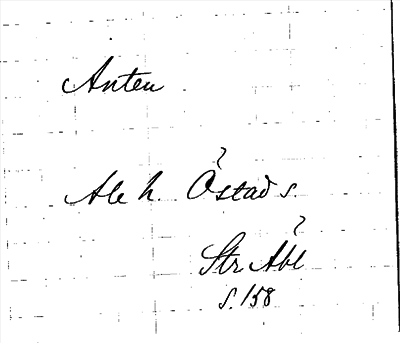 Anten
?
Ale h. Östad s.
?
Str Åbl
s. 158